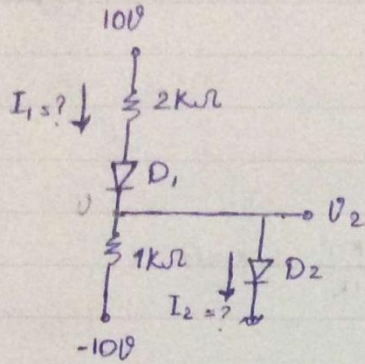 10v
I₁=?
2KΩ
D₁
v
v₂
1KΩ
D₂
I₂=?
-10v